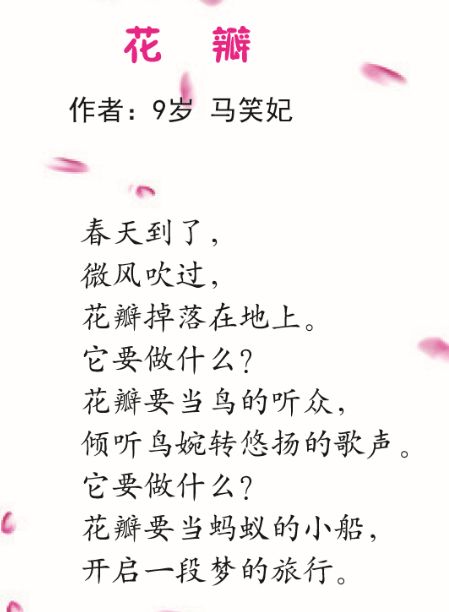 花 瓣
作者：9岁 马笑妃
春天到了，
微风吹过，
花瓣掉落在地上。
它要做什么？
花瓣要当鸟的听众，
倾听鸟婉转悠扬的歌声。
它要做什么？
花瓣要当蚂蚁的小船，
开启一段梦的旅行。